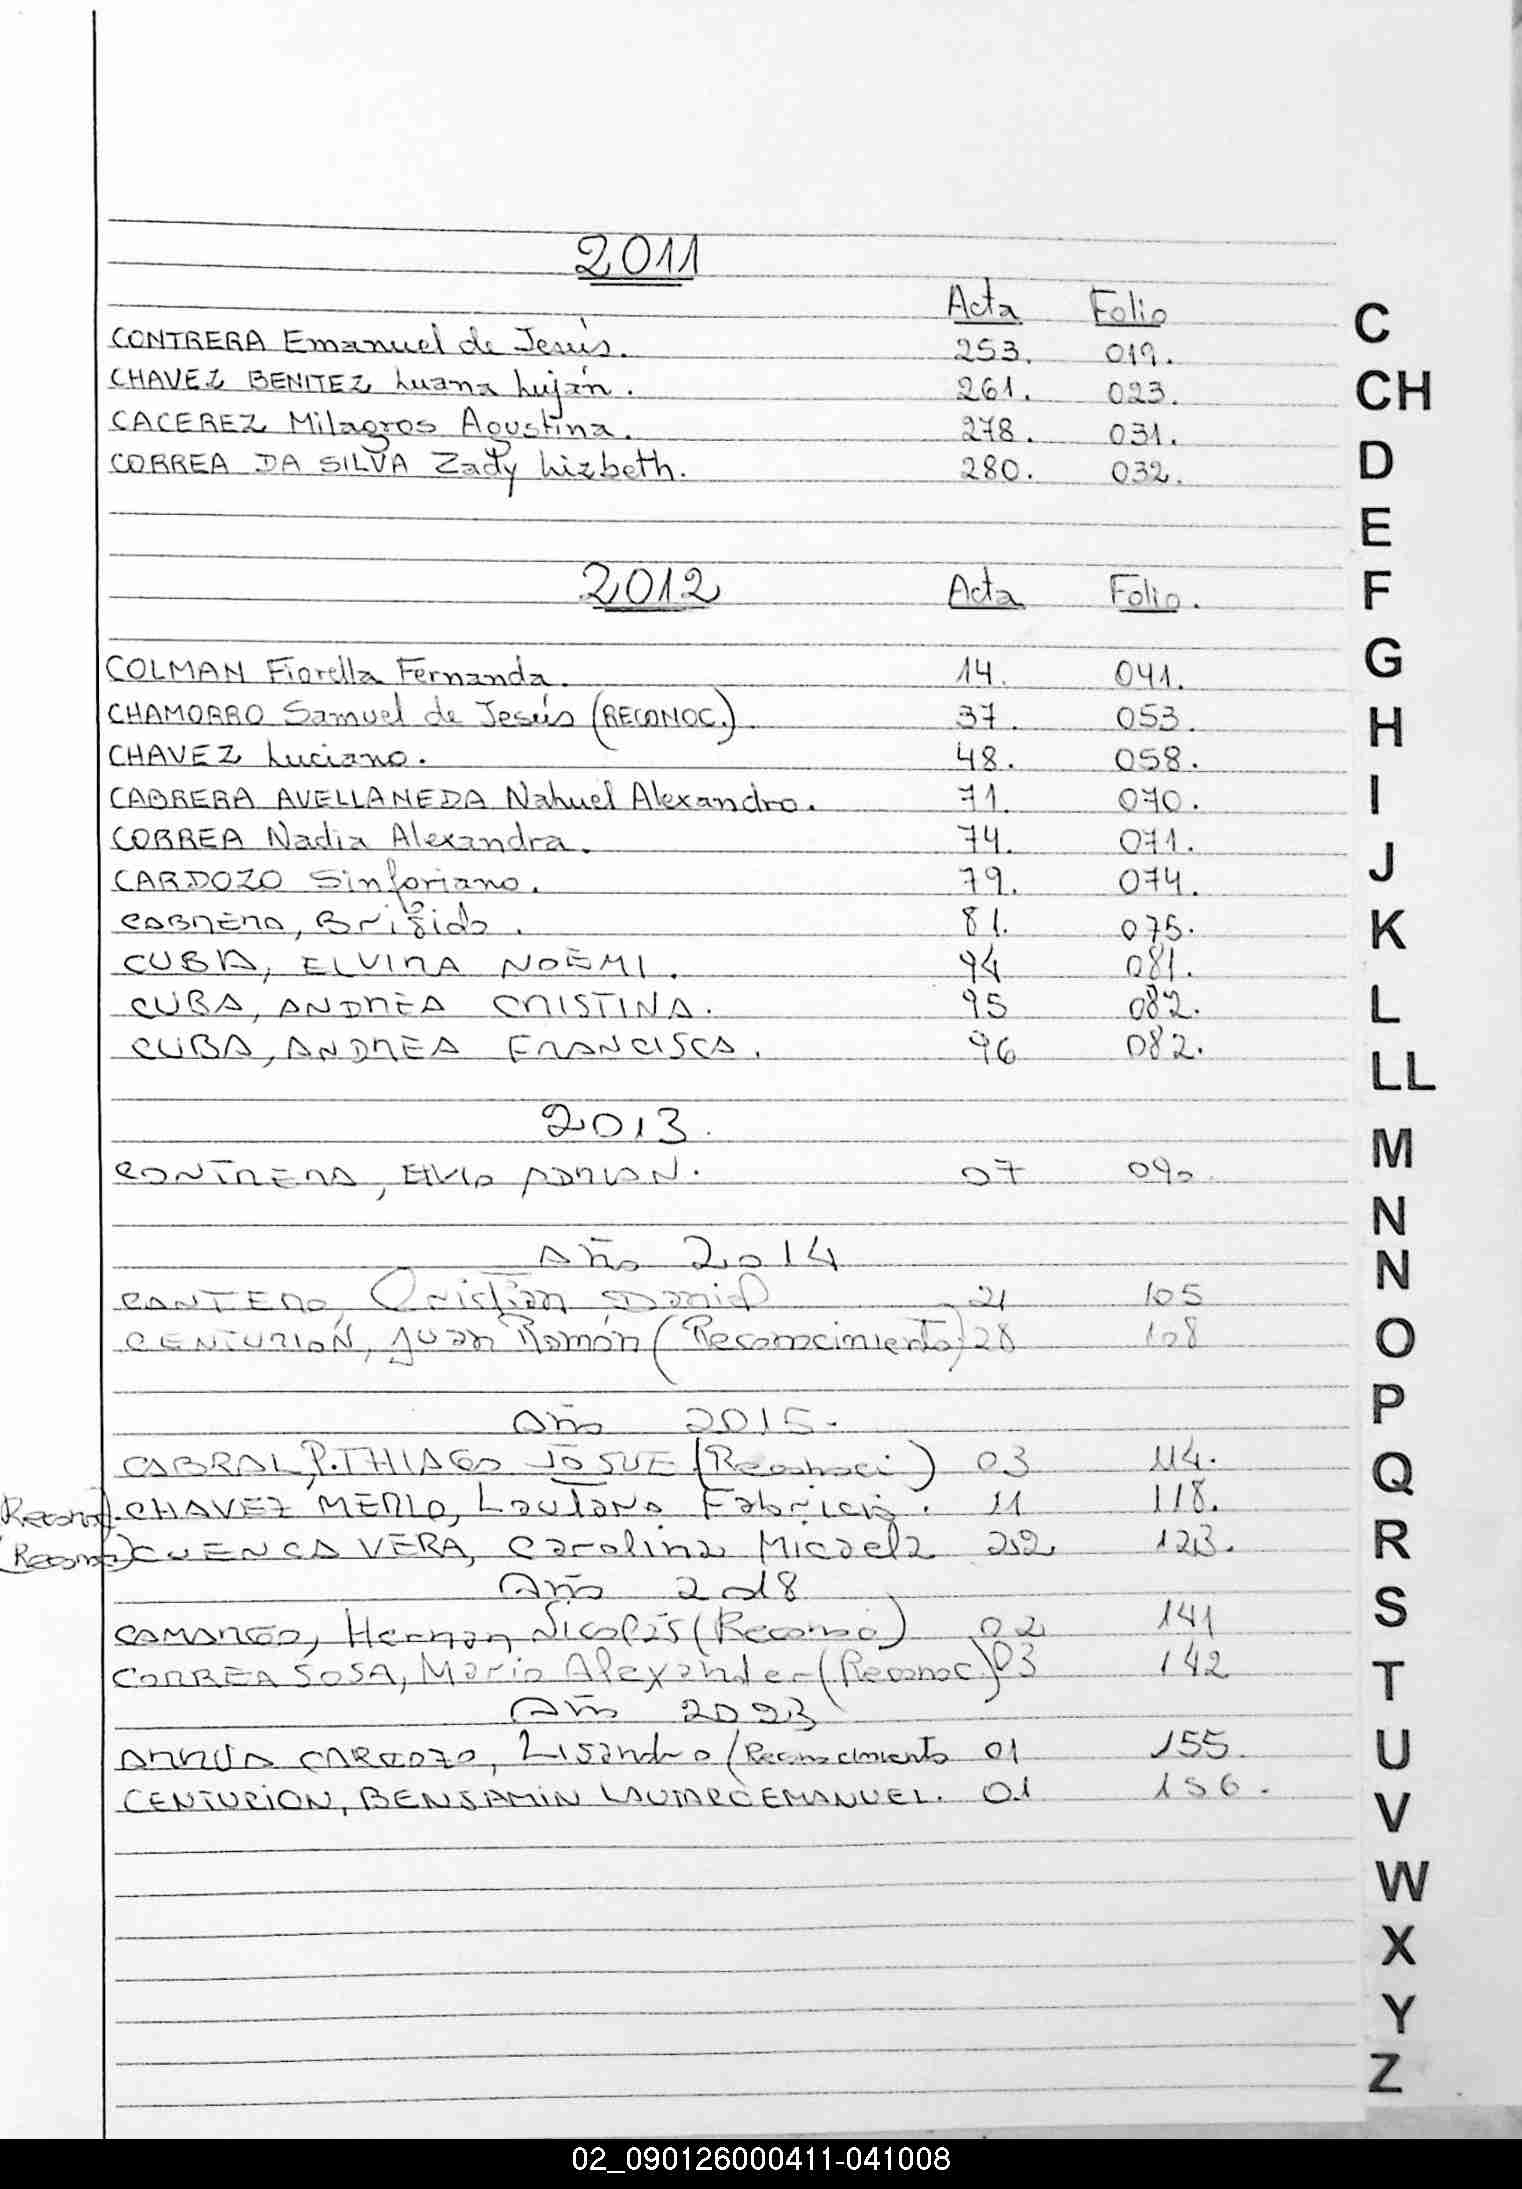 2011
Acta Folio
CONTRERA Emanuel de Jesús. 253. 019.
CHAVEZ BENITEZ Luana Luján. 261. 023.
CACEREZ Milagros Agustina. 278. 031.
CORREA DA SILVA Zady Lizbeth. 280. 032.
2012 Acta Folio.
COLMAN Fiorella Fernanda. 14. 041.
CHAMORRO Samuel de Jesús (RECONOC.) 37. 053.
CHAVEZ Luciano. 48. 058.
CABRERA AVELLANEDA Nahuel Alexandro. 71. 070.
CORREA Nadia Alexandra. 74. 071.
CARDOZO Sinforiano. 79. 074.
CABRERA, Brígido. 81. 075.
CUBA, ELVIRA NOEMI. 94 081.
CUBA, ANDREA CRISTINA. 95 082.
CUBA, ANDREA FRANCISCA. 96 082.
2013.
CONTRERA, ADRIAN. 07 090.
Año 2014
CANTERO, Cristian Daniel 21 105
CENTURION, Juan Ramón (Reconocimiento) 28 108
Año 2015.
CABRAL, P. THIAGO JOSUE (Reconoci) 03 114.
(Reconoc). CHAVEZ MERLO, Lautaro Fabricio. 11 118.
(Reconoc) CUENCA VERA, Carolina Micaela 22 123.
Año 2018
CAMARGO, Hernan Nicolás (Reconoc) 02 141
CORREA SOSA, Mario Alexander (Reconoc) 03 142
Año 2023
CARDOZO, Lisandro (Reconocimiento 01 155.
CENTURION, BENJAMIN LAUTARO EMANUEL. 01 156.
C
CH
D
E
F
G
H
I
J
K
L
LL
M
N
N
O
P
Q
R
S
T
U
V
W
X
Y
Z
02_090126000411-041008